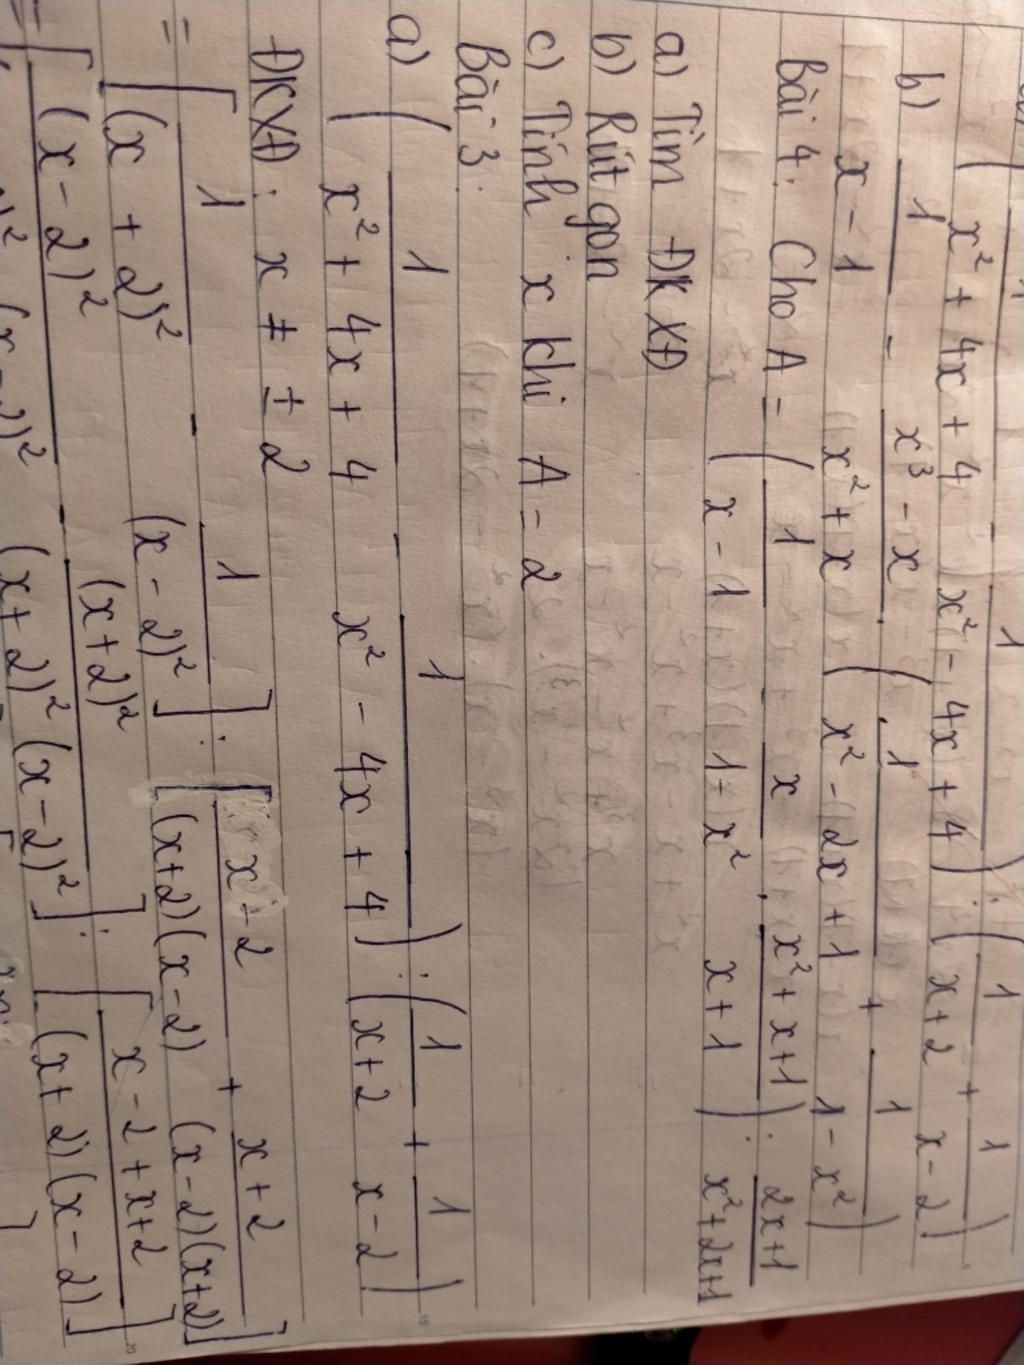 ( 1/(x² + 4x + 4) - 1/(x² - 4x + 4) ) : ( 1/(x+2) + 1/(x-2) )
b) 1/(x - 1) - (x³ - x)/(x² + x) . ( 1/(x² - 2x + 1) + 1/(1 - x²) )
Bài 4. Cho A = ( 1/(x - 1) - x/(1 - x²) . (x² + x + 1)/(x + 1) ) : (2x+1)/(x²+2x+1)
a) Tìm ĐKXĐ
b) Rút gọn
c) Tính x khi A = 2
Bài 3.
a) ( 1/(x² + 4x + 4) - 1/(x² - 4x + 4) ) : ( 1/(x+2) + 1/(x-2) )
ĐKXĐ: x ≠ ± 2
= [ 1/(x + 2)² - 1/(x - 2)² ] : [ (x - 2)/((x+2)(x-2)) + (x+2)/((x-2)(x+2)) ]
= [ (x - 2)²/((x+2)² (x-2)²) - (x+2)²/((x+2)² (x-2)²) ] : [ (x - 2 + x+2)/((x+2)(x-2)) ]